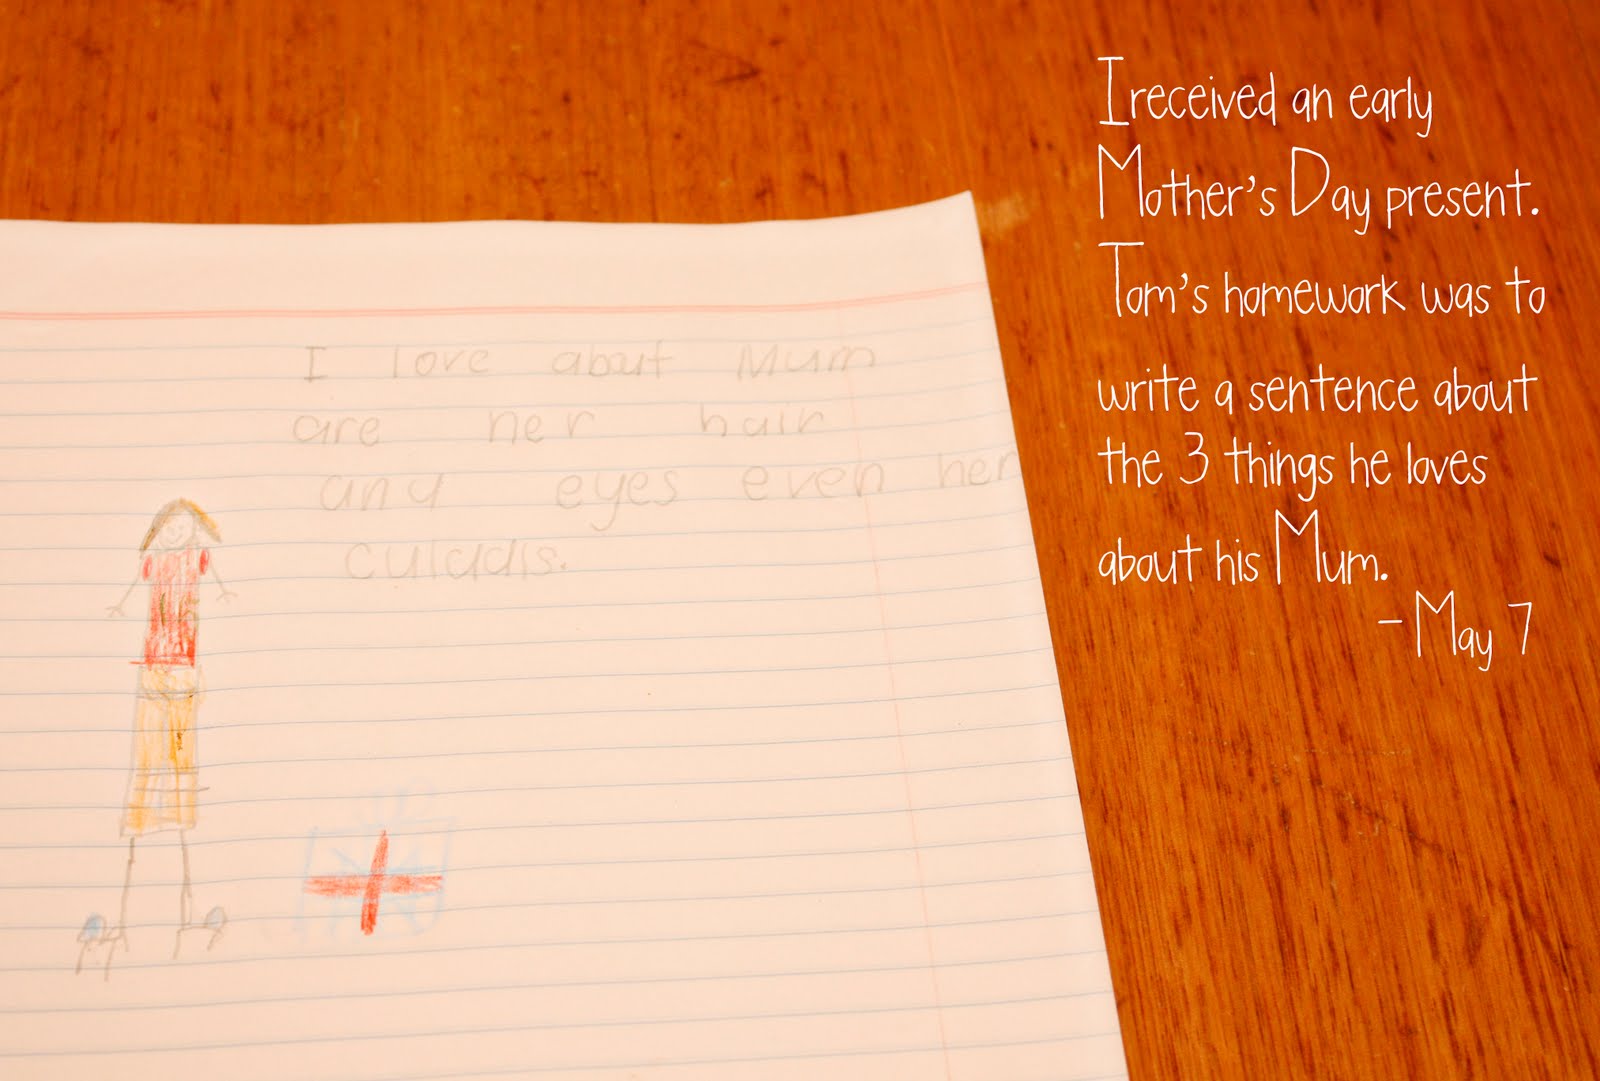 I received an early
Mother's Day present.
Tom's homework was to
write a sentence about
the 3 things he loves
about his Mum.
- May 7
I love about Mum
are her hair
and eyes even her
culadis.